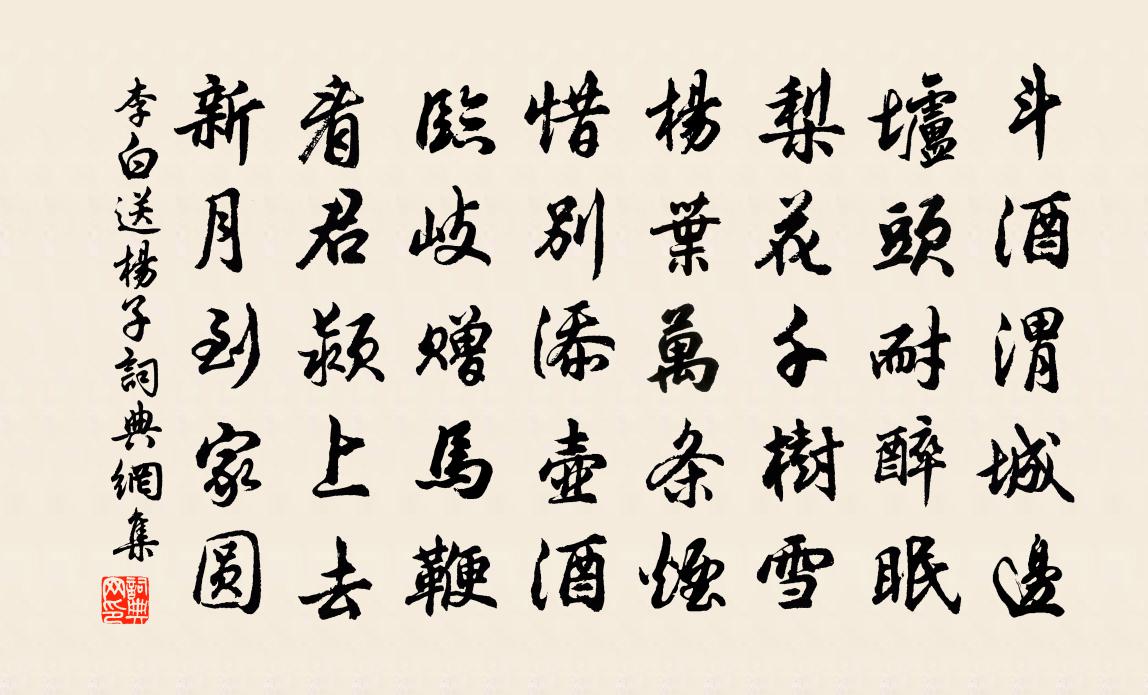 斗酒渭城邊
壚頭耐醉眠
梨花千樹雪
楊葉萬条煙
惜別添壺酒
臨岐贈馬鞭
看君潁上去
新月到家圓
李白送楊子詞典網集
詞典网印